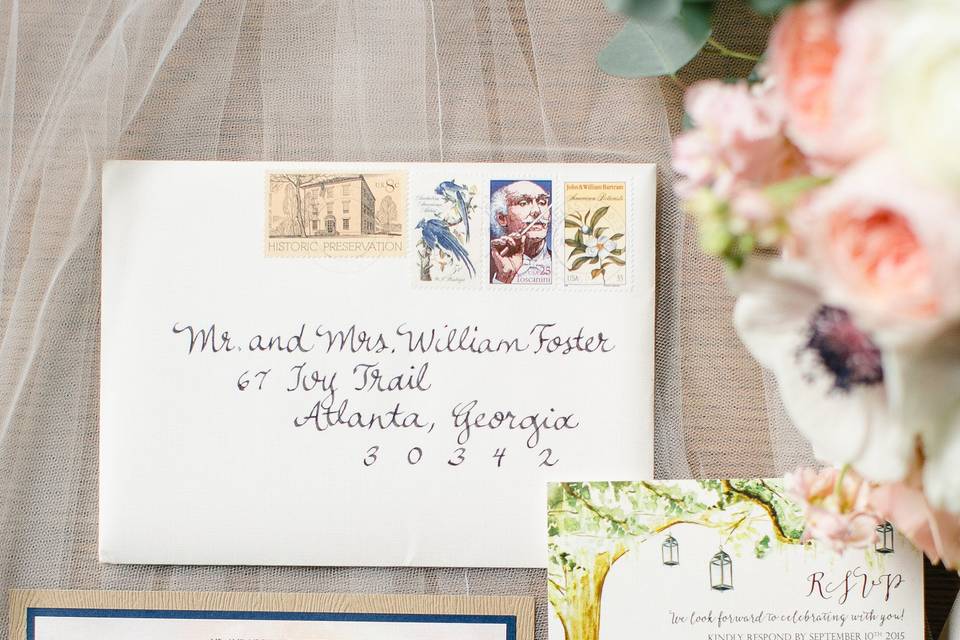 U.S. 8c
HISTORIC PRESERVATION
25
Toscanini
John & William Bartram
USA
33
Mr. and Mrs. William Foster
67 Ivy Trail
Atlanta, Georgia
3 0 3 4 2
RSVP
We look forward to celebrating with you!
KINDLY RESPOND BY SEPTEMBER 10TH 2015